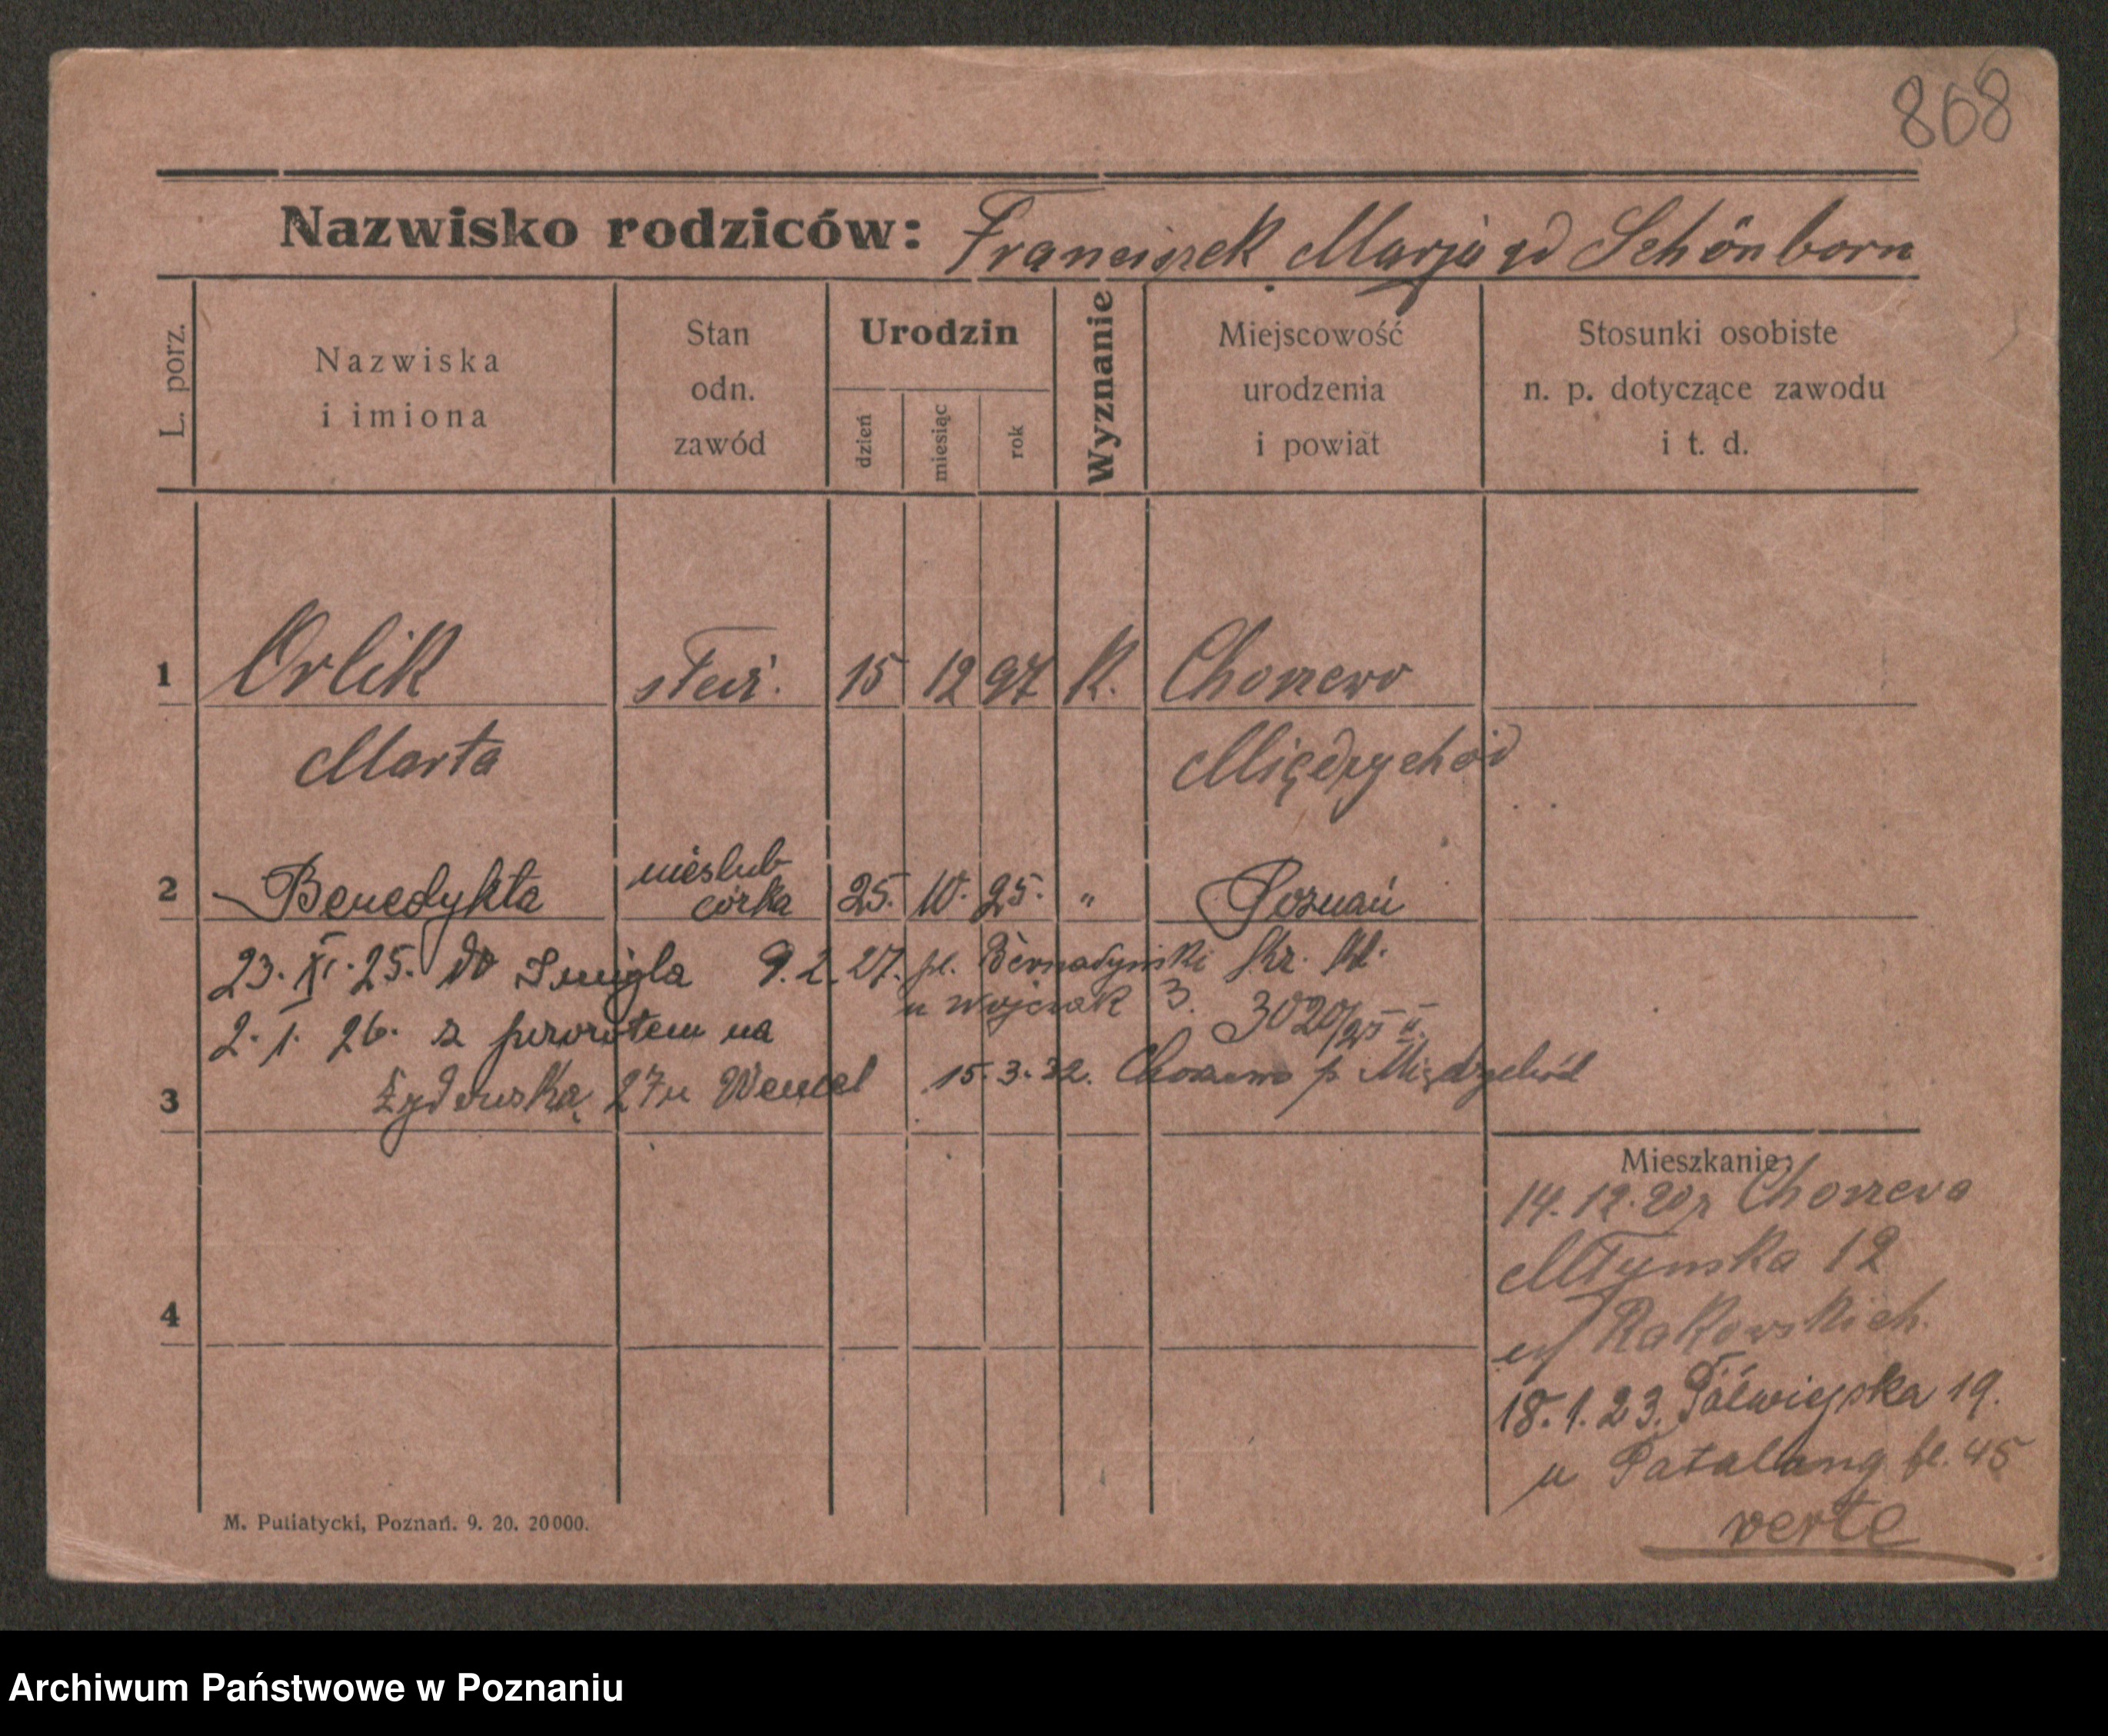 868
Nazwisko rodziców: Franciszek Marja zd Schönborn
L. porz.
Nazwiska
i imiona
Stan
odn.
zawód
Urodzin
dzień
miesiąc
rok
Wyznanie
Miejscowość
urodzenia
i powiat
Stosunki osobiste
n. p. dotyczące zawodu
i t. d.
1 Orlik 15 12 97 K. Chorzewo
Marta Międzychód
nieślub
2 Benedykta córka 25. 10. 25. " Poznań
23. XI. 25. do Śmigla 9. 2. 27. pl. Bernadyński
u Wojciak 3. 3020/25 II.
2. 1. 26. z powrotem na
15. 3. 32. Chorzewo p. Międzychód
3 Żydowska 27 u Wencel
Mieszkanie:
14. 12. 20 z Chorzewa
Młyńska 12
4
Rakowskich.
18. 1. 23. Półwiejska 19.
u Patalang fl. 45
verte
M. Putiatycki, Poznań. 9. 20. 20000.
Archiwum Państwowe w Poznaniu